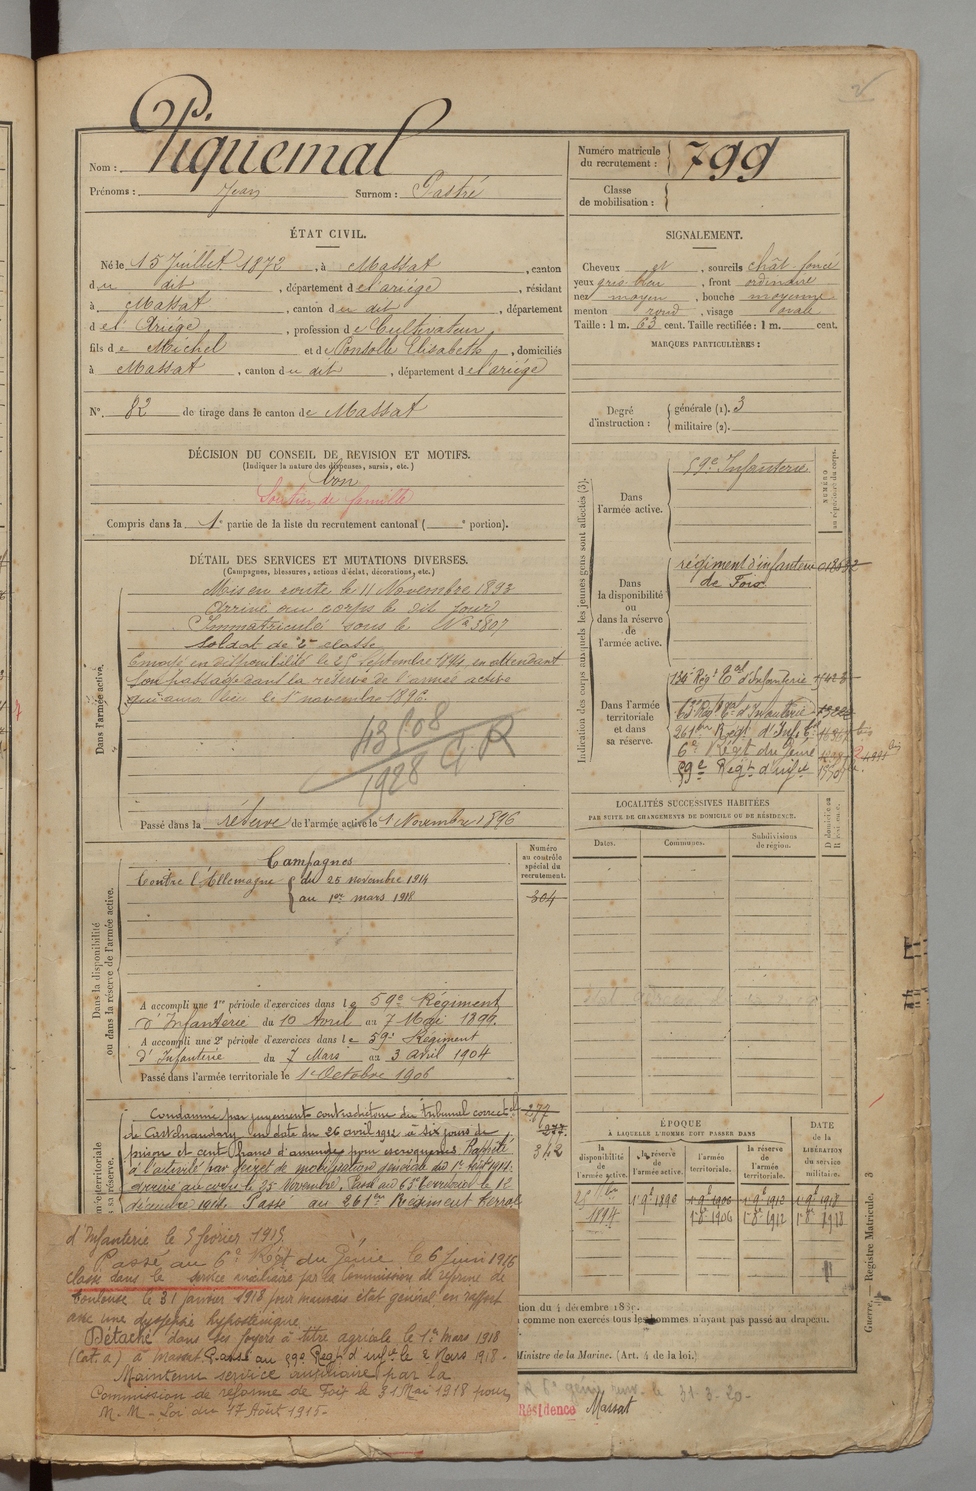 Nom : Piquemal
Prénoms : Jean Surnom : Gastré
Numéro matricule du recrutement : 799
Classe de mobilisation :
ÉTAT CIVIL.
Né le 15 Juillet 1872, à Massat, canton
du dit, département de l'ariége, résidant
à Massat, canton du dit, département
de l'Ariége, profession de Cultivateur
fils de Michel et de Ponsolle Elisabeth, domiciliés
à Massat, canton du dit, département de l'ariége
N°. 82 de tirage dans le canton de Massat
SIGNALEMENT.
Cheveux et, sourcils chât. foncé
yeux gris bleu, front ordinaire
nez moyen, bouche moyenne
menton rond, visage ovale
Taille : 1 m. 63 cent. Taille rectifiée : 1 m. cent.
MARQUES PARTICULIÈRES :
Degré d'instruction : générale (1). 3
militaire (2).
DÉCISION DU CONSEIL DE REVISION ET MOTIFS.
(Indiquer la nature des dispenses, sursis, etc.)
bon
Soutien de famille
Compris dans la 1e partie de la liste du recrutement cantonal ( e portion).
DÉTAIL DES SERVICES ET MUTATIONS DIVERSES.
(Campagnes, blessures, actions d'éclat, décorations, etc.)
Dans l'armée active.
Mis en route le 11 Novembre 1893
Arrivé au corps le dit jour
Immatriculé sous le N° 3807
Soldat de 2e classe
Envoyé en disponibilité le 25 Septembre 1894 en attendant
son passage dans la réserve de l'armée active
qui aura lieu le 1er novembre 1896
43508
1928 G R
Passé dans la réserve de l'armée active le 1 Novembre 1896
Indication des corps auxquels les jeunes gens sont affectés (3).
NUMÉRO au répertoire du corps.
Dans l'armée active.
59e Infanterie
Dans la disponibilité ou dans la réserve de l'armée active.
régiment d'infanterie
de Foix
Dans l'armée territoriale et dans sa réserve.
Régt Tal d'Infanterie
Régt Tal d'Infanterie
261ème Régt d'Inf. Tal
6e Régt du Génie
59e Régt d'inf.ie
LOCALITÉS SUCCESSIVES HABITÉES
PAR SUITE DE CHANGEMENTS DE DOMICILE OU DE RÉSIDENCE.
Dates. Communes. Subdivisions de région. D domicile ou R résidence.
Dans la disponibilité ou dans la réserve de l'armée active.
Numéro au contrôle spécial du recrutement.
304
Campagnes
Contre l'Allemagne du 25 novembre 1914
au 1er mars 1918
A accompli une 1re période d'exercices dans le 59e Régiment
d'Infanterie du 10 Avril au 7 Mai 1899.
A accompli une 2e période d'exercices dans le 59e Régiment
d'Infanterie du 7 Mars au 3 avril 1904
Passé dans l'armée territoriale le 1 Octobre 1906
Condamné par jugement contradictoire du tribunal correctel
de Castelnaudary en date du 26 avril 1912 à six jours de
prison et cent francs d'amende pour escroquerie. Rappelé
à l'activité par décret de mobilisation générale du 1er Août 1914.
Arrivé au corps le 25 Novembre. Passé au 63e Territorial le 12
décembre 1914. Passé au 261ème Régiment Terral
277
377
342
d'Infanterie le 5 février 1915
Passé au 6e Régt du Génie le 6 Juin 1916
classé dans le service auxiliaire par la Commission de réforme de
Toulouse le 31 janvier 1918 pour mauvais état général en rapport
avec une dyspepsie hyposthénique.
Détaché dans ses foyers à titre agricole le 1er mars 1918
(Cat. a) à Massat. Passé au 59e Régt d'inf.ie le 2 Mars 1918.
Maintenu service auxiliaire par la
Commission de réforme de Foix le 31 Mai 1918 pour
N. M - Loi du 17 Août 1915-
ÉPOQUE
À LAQUELLE L'HOMME DOIT PASSER DANS
la disponibilité de l'armée active. la réserve de l'armée active. l'armée territoriale. la réserve de l'armée territoriale.
DATE de la LIBÉRATION du service militaire.
1894
1896 1906 1912 1918
1906 1912 1918
tion du 4 décembre 1889.
comme non exercés tous les hommes n'ayant pas passé au drapeau.
Ministre de la Marine. (Art. 4 de la loi.)
31-3-20-
Résidence Massat
Guerre. — Registre Matricule. 3